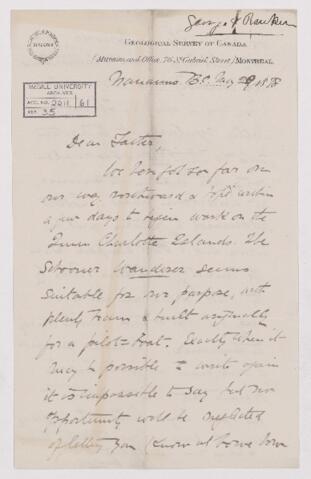 George
GEOLOGICAL SURVEY OF CANADA
(Museum and Office, 76 St. Gabriel Street) MONTREAL
MCGILL UNIVERSITY
ARCHIVES
ACC. NO. 2211/61
REF. 35
Nanaimo B.C. May 29 1878
Dear Father,
We have got so far on
our way northward & hope within
a few days to begin work on the
Queen Charlotte Islands. The
Schooner Wanderer seems
suitable for our purpose, with
plenty room & built originally
for a pilot-boat. Exactly when it
may be possible to write again
it is impossible to say but no
opportunity will be neglected
of letting you know at home how